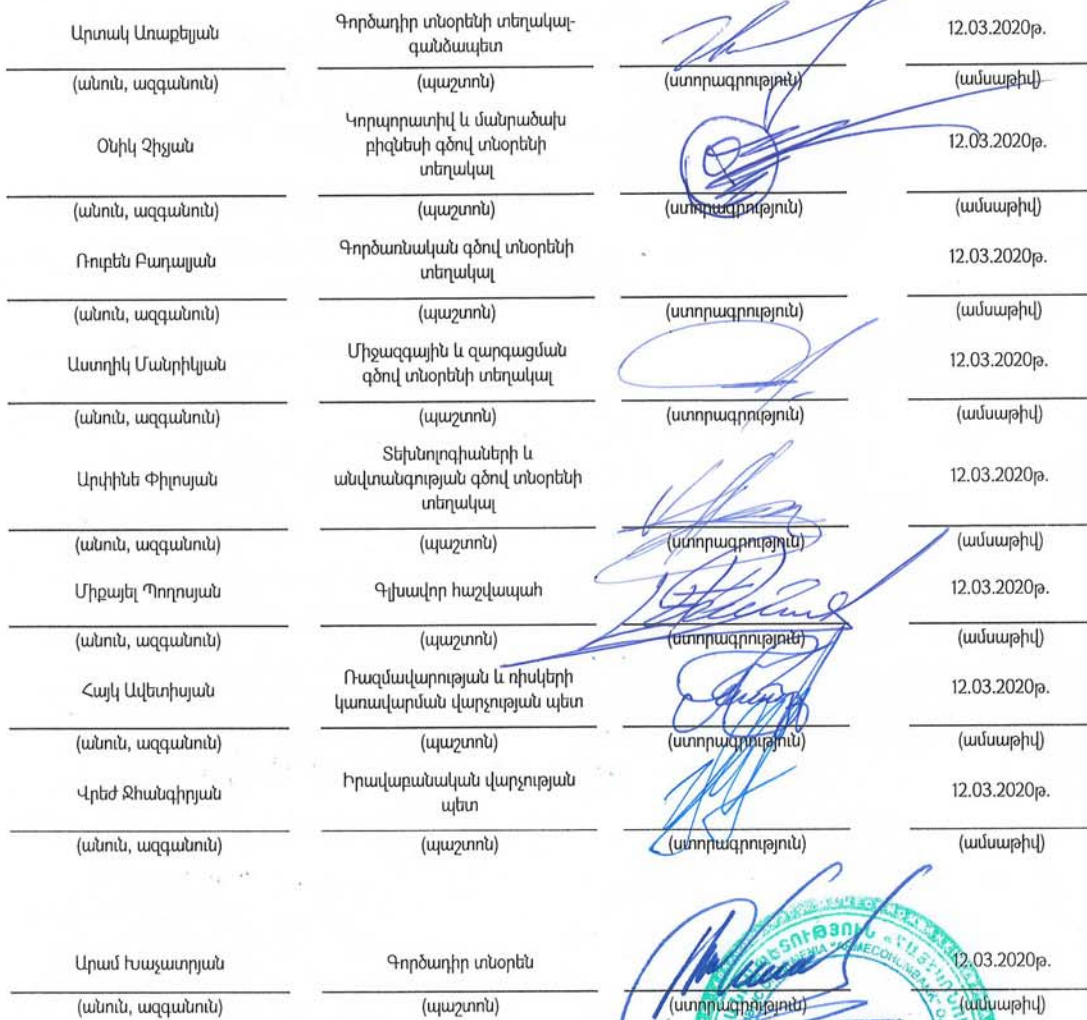 Արտակ Առաքելյան
Գործադիր տնօրենի տեղակալ-
գանձապետ
12.03.2020թ.
(անուն, ազգանուն) (պաշտոն) (ստորագրություն) (ամսաթիվ)
Օնիկ Չիչյան
Կորպորատիվ և մանրածախ
բիզնեսի գծով տնօրենի
տեղակալ
12.03.2020թ.
(անուն, ազգանուն) (պաշտոն) (ստորագրություն) (ամսաթիվ)
Ռուբեն Բադալյան
Գործառնական գծով տնօրենի
տեղակալ
12.03.2020թ.
(անուն, ազգանուն) (պաշտոն) (ստորագրություն) (ամսաթիվ)
Աստղիկ Մանրիկյան
Միջազգային և զարգացման
գծով տնօրենի տեղակալ
12.03.2020թ.
(անուն, ազգանուն) (պաշտոն) (ստորագրություն) (ամսաթիվ)
Արփինե Փիլոսյան
Տեխնոլոգիաների և
անվտանգության գծով տնօրենի
տեղակալ
12.03.2020թ.
(անուն, ազգանուն) (պաշտոն) (ստորագրություն) (ամսաթիվ)
Միքայել Պողոսյան
Գլխավոր հաշվապահ
12.03.2020թ.
(անուն, ազգանուն) (պաշտոն) (ստորագրություն) (ամսաթիվ)
Հայկ Ավետիսյան
Ռազմավարության և ռիսկերի
կառավարման վարչության պետ
12.03.2020թ.
(անուն, ազգանուն) (պաշտոն) (ստորագրություն) (ամսաթիվ)
Վրեժ Ջհանգիրյան
Իրավաբանական վարչության
պետ
12.03.2020թ.
(անուն, ազգանուն) (պաշտոն) (ստորագրություն) (ամսաթիվ)
Արամ Խաչատրյան
Գործադիր տնօրեն
12.03.2020թ.
(անուն, ազգանուն) (պաշտոն) (ստորագրություն) (ամսաթիվ)